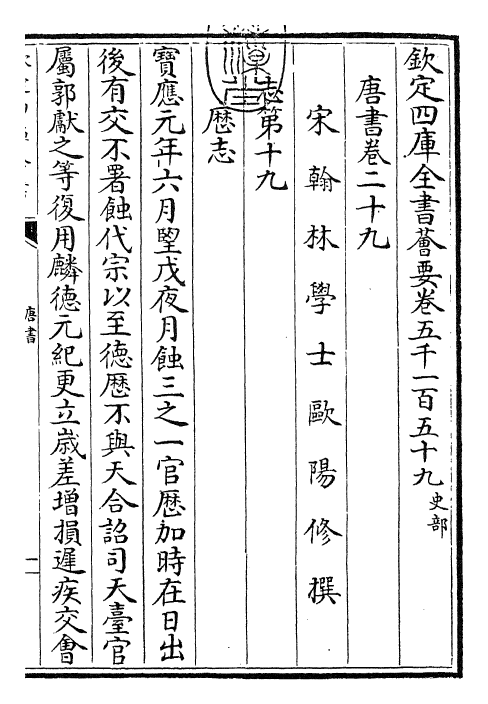 欽定四庫全書薈要卷五千一百五十九史部
唐書卷二十九
宋翰林學士歐陽修撰
志第十九
厯志
寳應元年六月望戊夜月蝕三之一官厯加時在日出
後有交不署蝕代宗以至德厯不與天合詔司天臺官
屬郭獻之等復用麟德元紀更立歳差增損遲疾交會
唐書
一